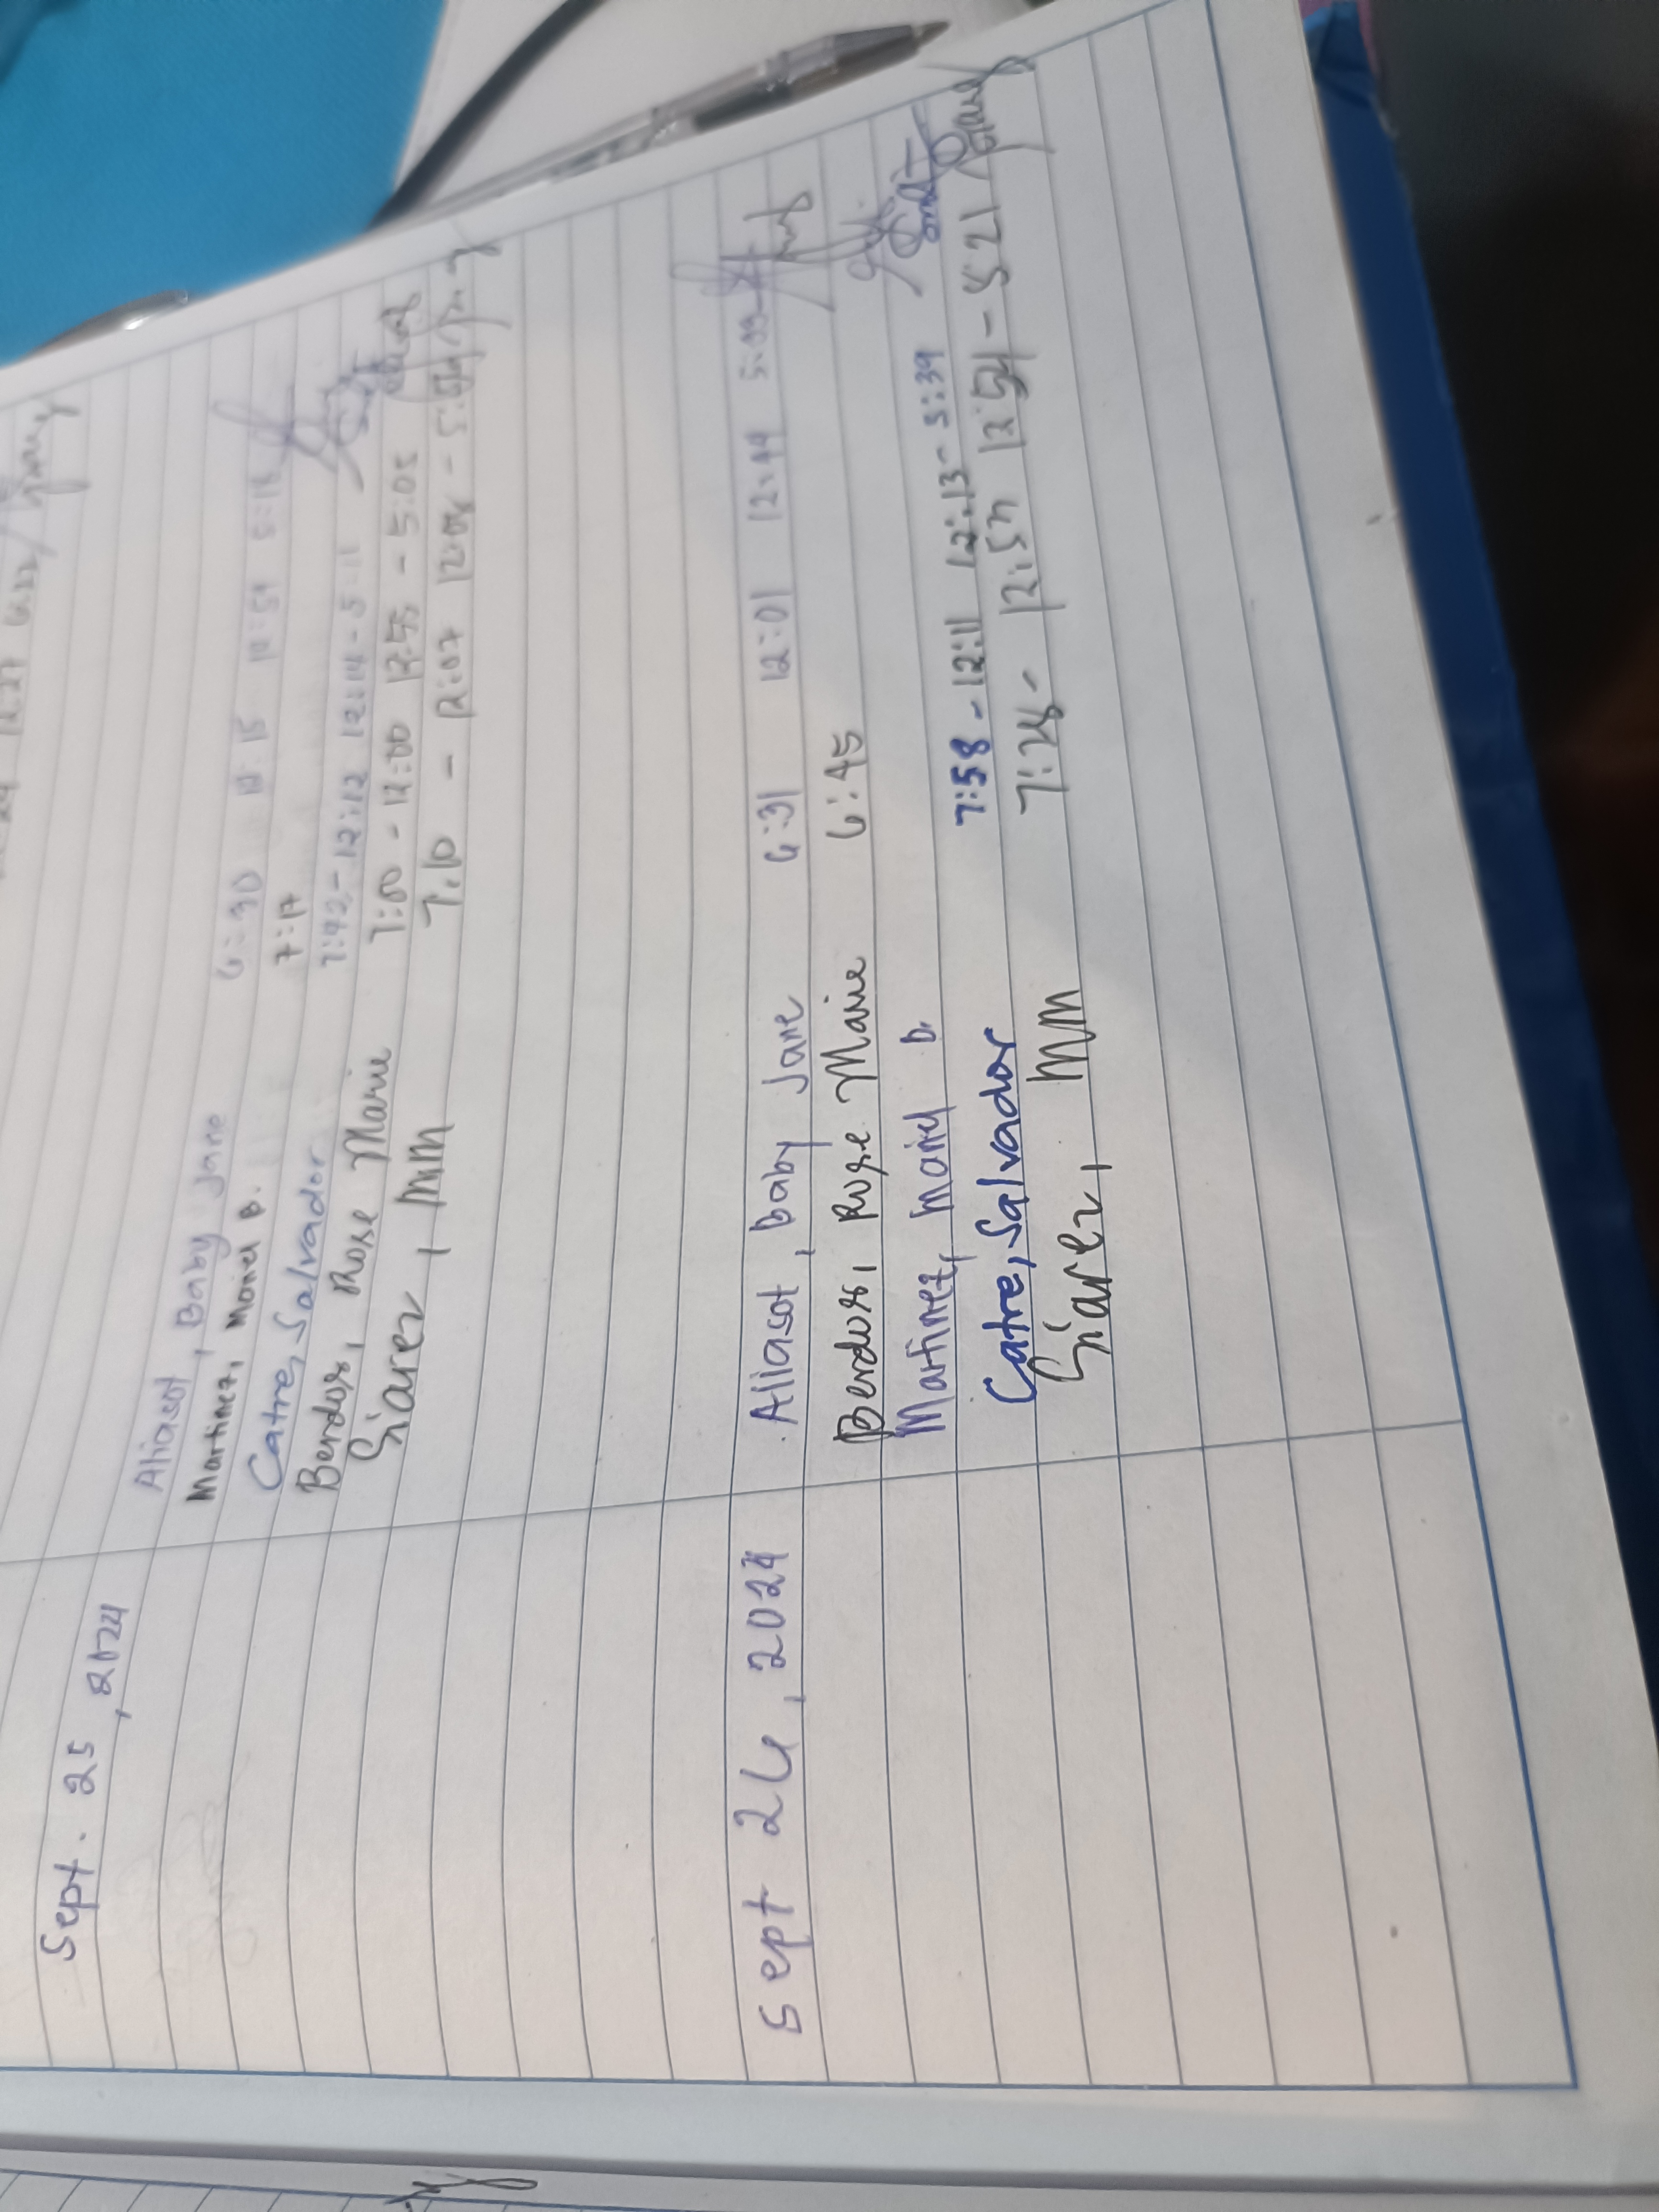 Sept. 25, 2024
Aliasot, Baby Jane 6:30 12:15 12:59 5:15
Martinez, Mariel D. 7:17
Catre, Salvador 7:42 - 12:12 12:14 - 5:11
Berdos, Rose Marie 7:00 - 12:00 12:55 - 5:05
Siarez, MM 7:10 - 12:07 12:08 -
Sept 26, 2024 Aliasot, Baby Jane 6:31 12:01 12:49 5:09
Berdos, Rose Marie 6:45
Martinez, Mariel D.
Catre, Salvador 7:58 - 12:11 12:13 - 5:39
Siarez, MM 7:28 - 12:57 12:54 - 5 21